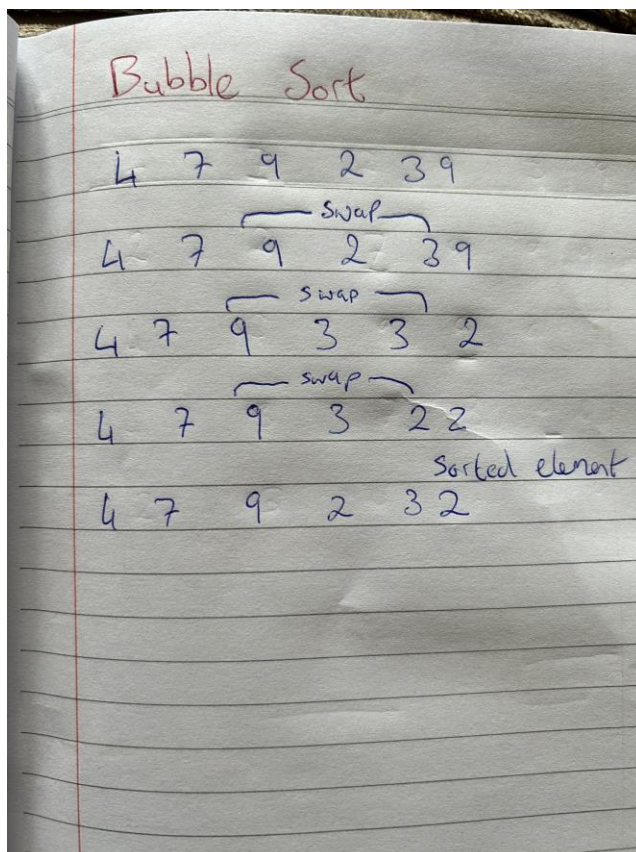 Bubble Sort
4 7 9 2 39
swap
4 7 9 2 39
swap
4 7 9 3 3 2
swap
4 7 9 3 2 2
Sorted element
4 7 9 2 3 2